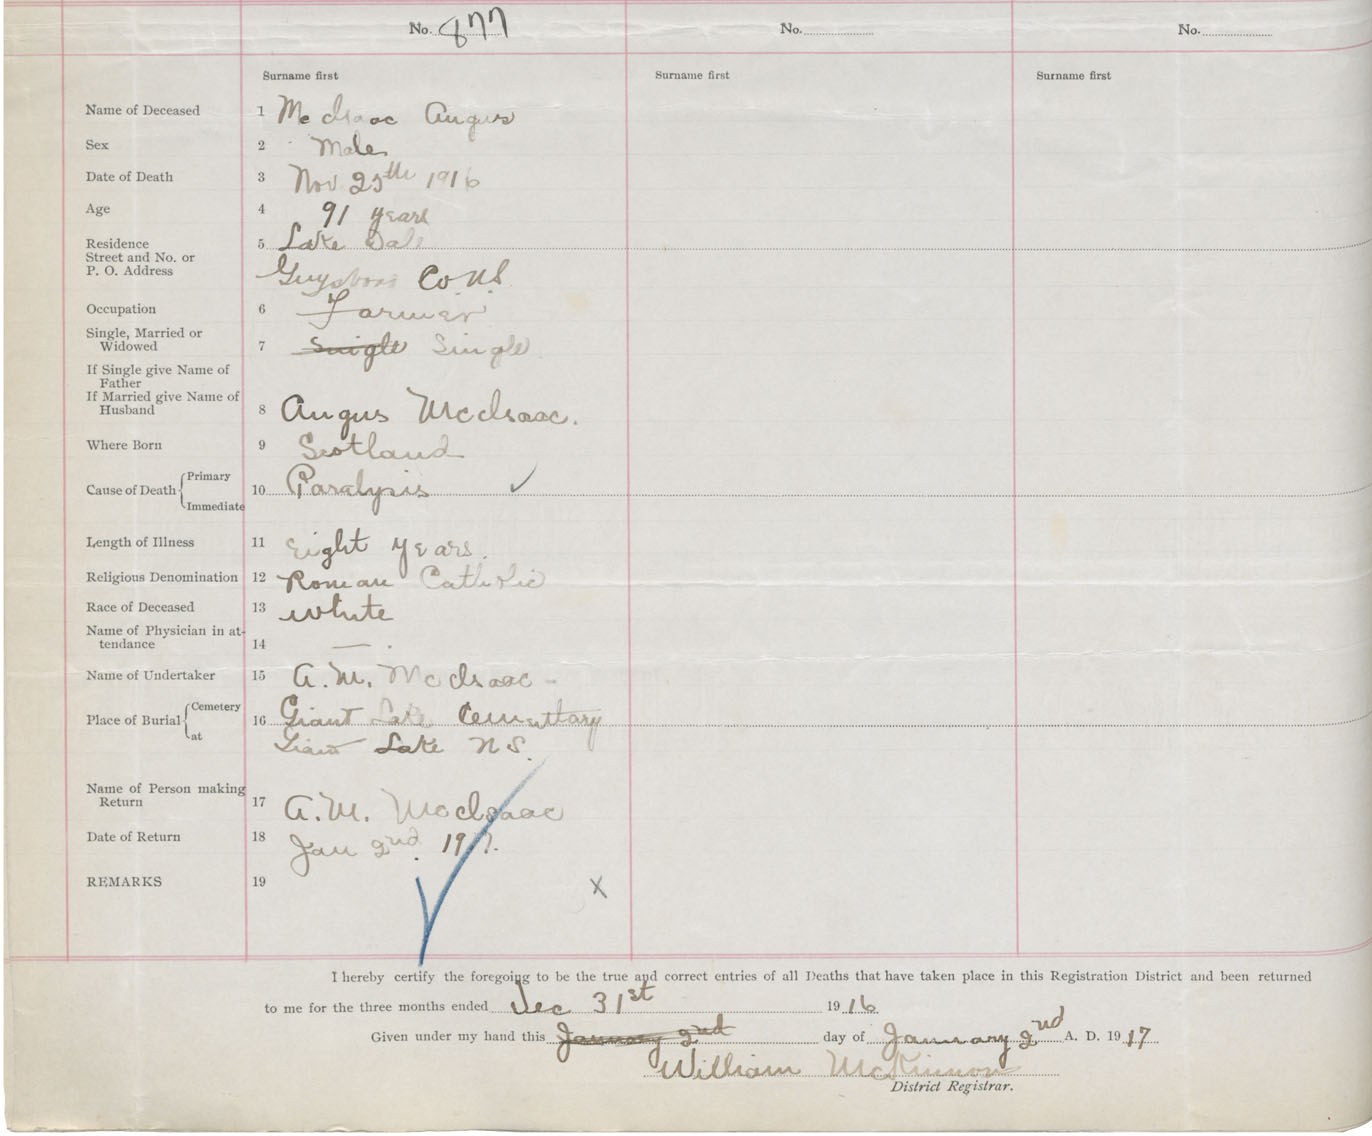 No. 877
No.
No.
Surname first
Surname first
Surname first
Name of Deceased 1 McIsaac Angus
Sex 2 Male
Date of Death 3 Nov 25th 1916
Age 4 91 years
Residence
Street and No. or
P. O. Address
5 Lake Dale
Guysboro Co N.S.
Occupation 6 Farmer
Single, Married or
Widowed
7 Single Single
If Single give Name of
Father
If Married give Name of
Husband
8 Angus McIsaac.
Where Born 9 Scotland
Cause of Death { Primary
Immediate
10 Paralysis ✓
Length of Illness 11 eight years.
Religious Denomination 12 Roman Catholic
Race of Deceased 13 white
Name of Physician in at-
tendance
14 —.
Name of Undertaker 15 A. M. McIsaac -
Place of Burial { Cemetery
at
16 Giant Lake Cementtary
Giant Lake N S.
Name of Person making
Return
17 A. M. McIsaac
Date of Return 18 Jan 2nd. 1917.
REMARKS 19 x
I hereby certify the foregoing to be the true and correct entries of all Deaths that have taken place in this Registration District and been returned
to me for the three months ended Dec 31st 1916
Given under my hand this January 2nd day of January 2nd A. D. 1917
William McKinnon
District Registrar.